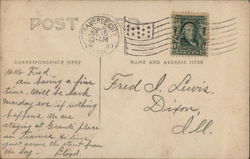 POST CARD
10-AM
CORRESPONDENCE HERE
NAME AND ADDRESS HERE
Hello Fred.
am having a fine
time. Will be back
Monday eve if nothing
happens. We are
staying at Grants' place
in
just across the street from
the bay - Lloyd.
Fred I. Lewis.
Dixon,
Ill.